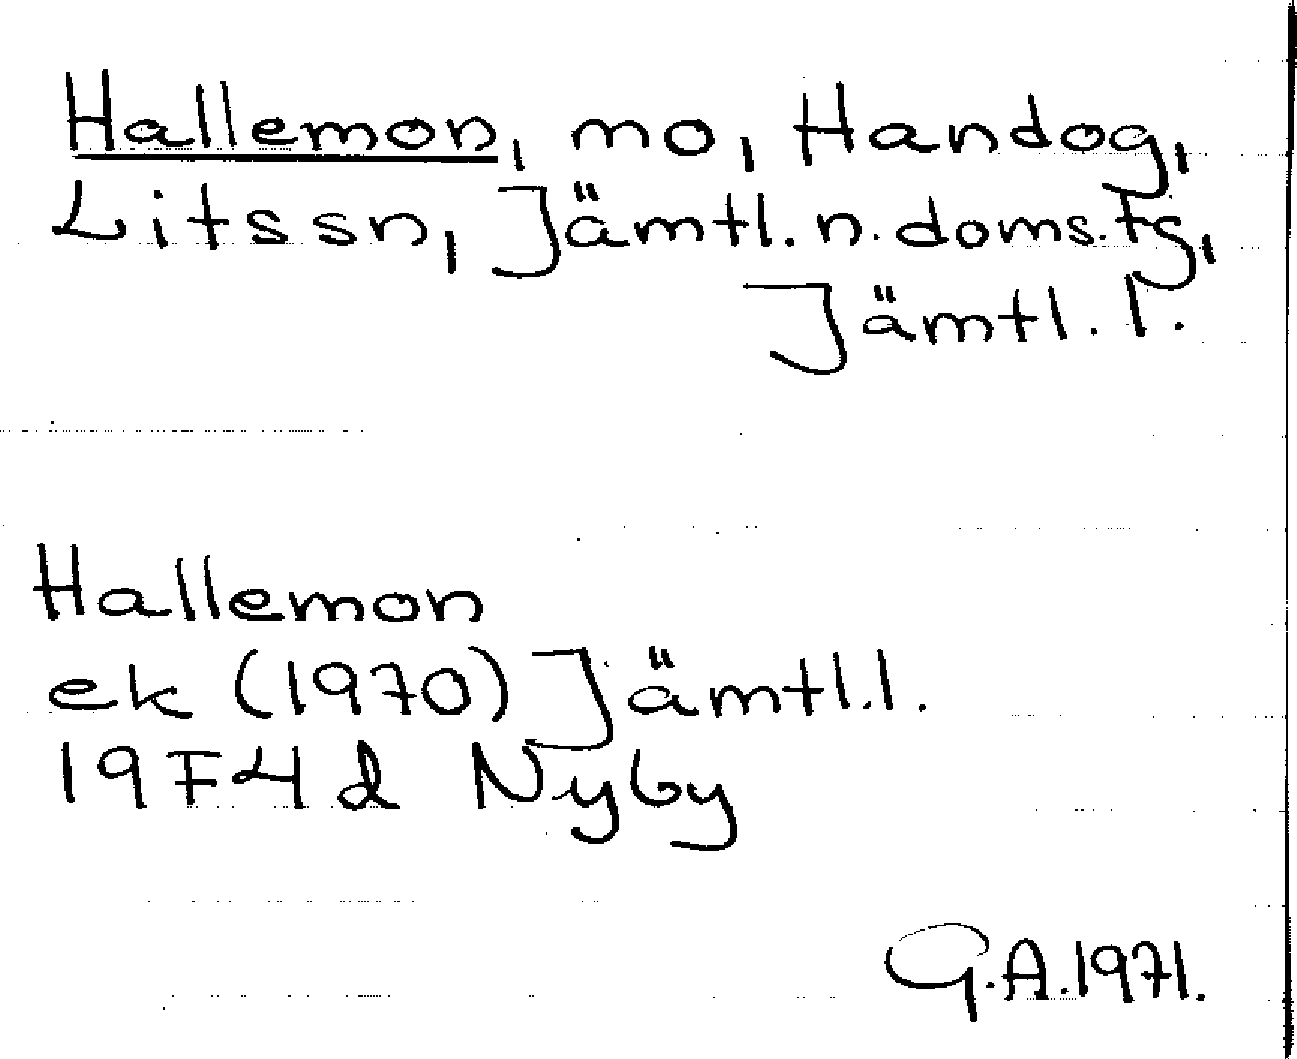 Hallemon, mo, Handog,
Litssn, Jämtl. n. doms. fg,
Jämtl. l.
Hallemon
ek (1970) Jämtl.l.
19F4d Nyby
G.A.1971.